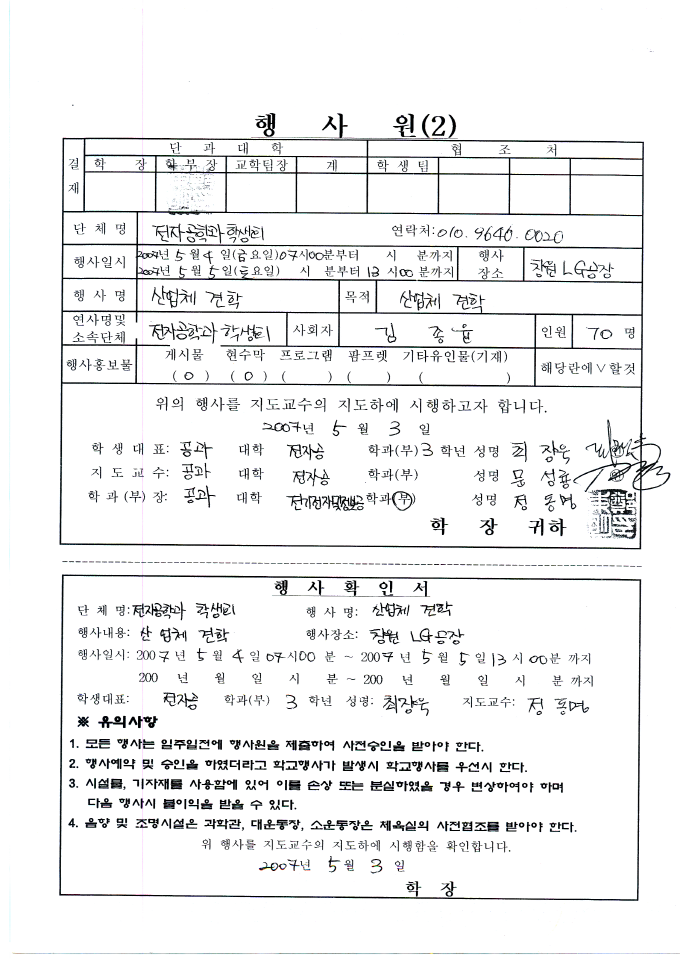 행 사 원(2)
결재 단 과 대 학 협 조 처
학 장 학 부 장 교학팀장 계 학 생 팀
단 체 명 전자공학과 학생회 연락처:010.9640.0020
행사일시 2007년 5월 4일(금요일)07시00분부터 시 분까지 행사장소 창원 LG공장
2007년 5월 5일(토요일) 시 분부터 13시00분까지
행 사 명 산업체 견학 목적 산업체 견학
연사명및 소속단체 전자공학과 학생회 사회자 김 종 윤 인원 70 명
행사홍보물 게시물 현수막 프로그램 팜프렛 기타유인물(기재) 해당란에∨할것
( O ) ( O ) ( ) ( ) ( )
위의 행사를 지도교수의 지도하에 시행하고자 합니다.
2007년 5월 3일
학 생 대 표: 공과 대학 전자공 학과(부) 3 학년 성명 최 장욱
지 도 교 수: 공과 대학 전자공 학과(부) 성명 문 성룡
학 과 (부) 장: 공과 대학 전기전자및정보공 학과(부) 성명 정 동명
학 장 귀하
행 사 확 인 서
단 체 명:전자공학과 학생회 행 사 명: 산업체 견학
행사내용: 산업체 견학 행사장소: 창원 LG공장
행사일시: 2007년 5월 4일07시00 분 ~ 2007년 5월 5일13시 00분 까지
200 년 월 일 시 분 ~ 200 년 월 일 시 분 까지
학생대표: 전자공 학과(부) 3 학년 성명: 최장욱 지도교수: 정 동명
※ 유의사항
1. 모든 행사는 일주일전에 행사원을 제출하여 사전승인을 받아야 한다.
2. 행사예약 및 승인을 하였더라고 학교행사가 발생시 학교행사를 우선시 한다.
3. 시설물, 기자재를 사용함에 있어 이를 손상 또는 분실하였을 경우 변상하여야 하며
다음 행사시 불이익을 받을 수 있다.
4. 음향 및 조명시설은 과학관, 대운동장, 소운동장은 체육실의 사전협조를 받아야 한다.
위 행사를 지도교수의 지도하에 시행함을 확인합니다.
2007년 5월 3일
학 장